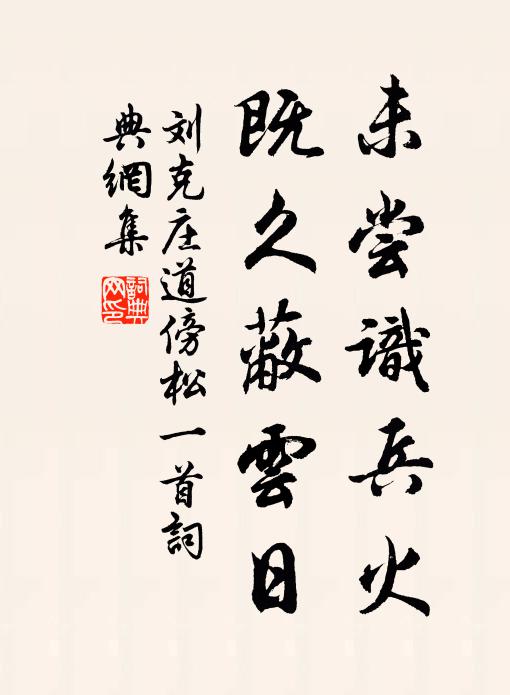 未尝識兵火
既久蔽雲日
刘克庄道傍松一首詞
典網集
詞典
网印